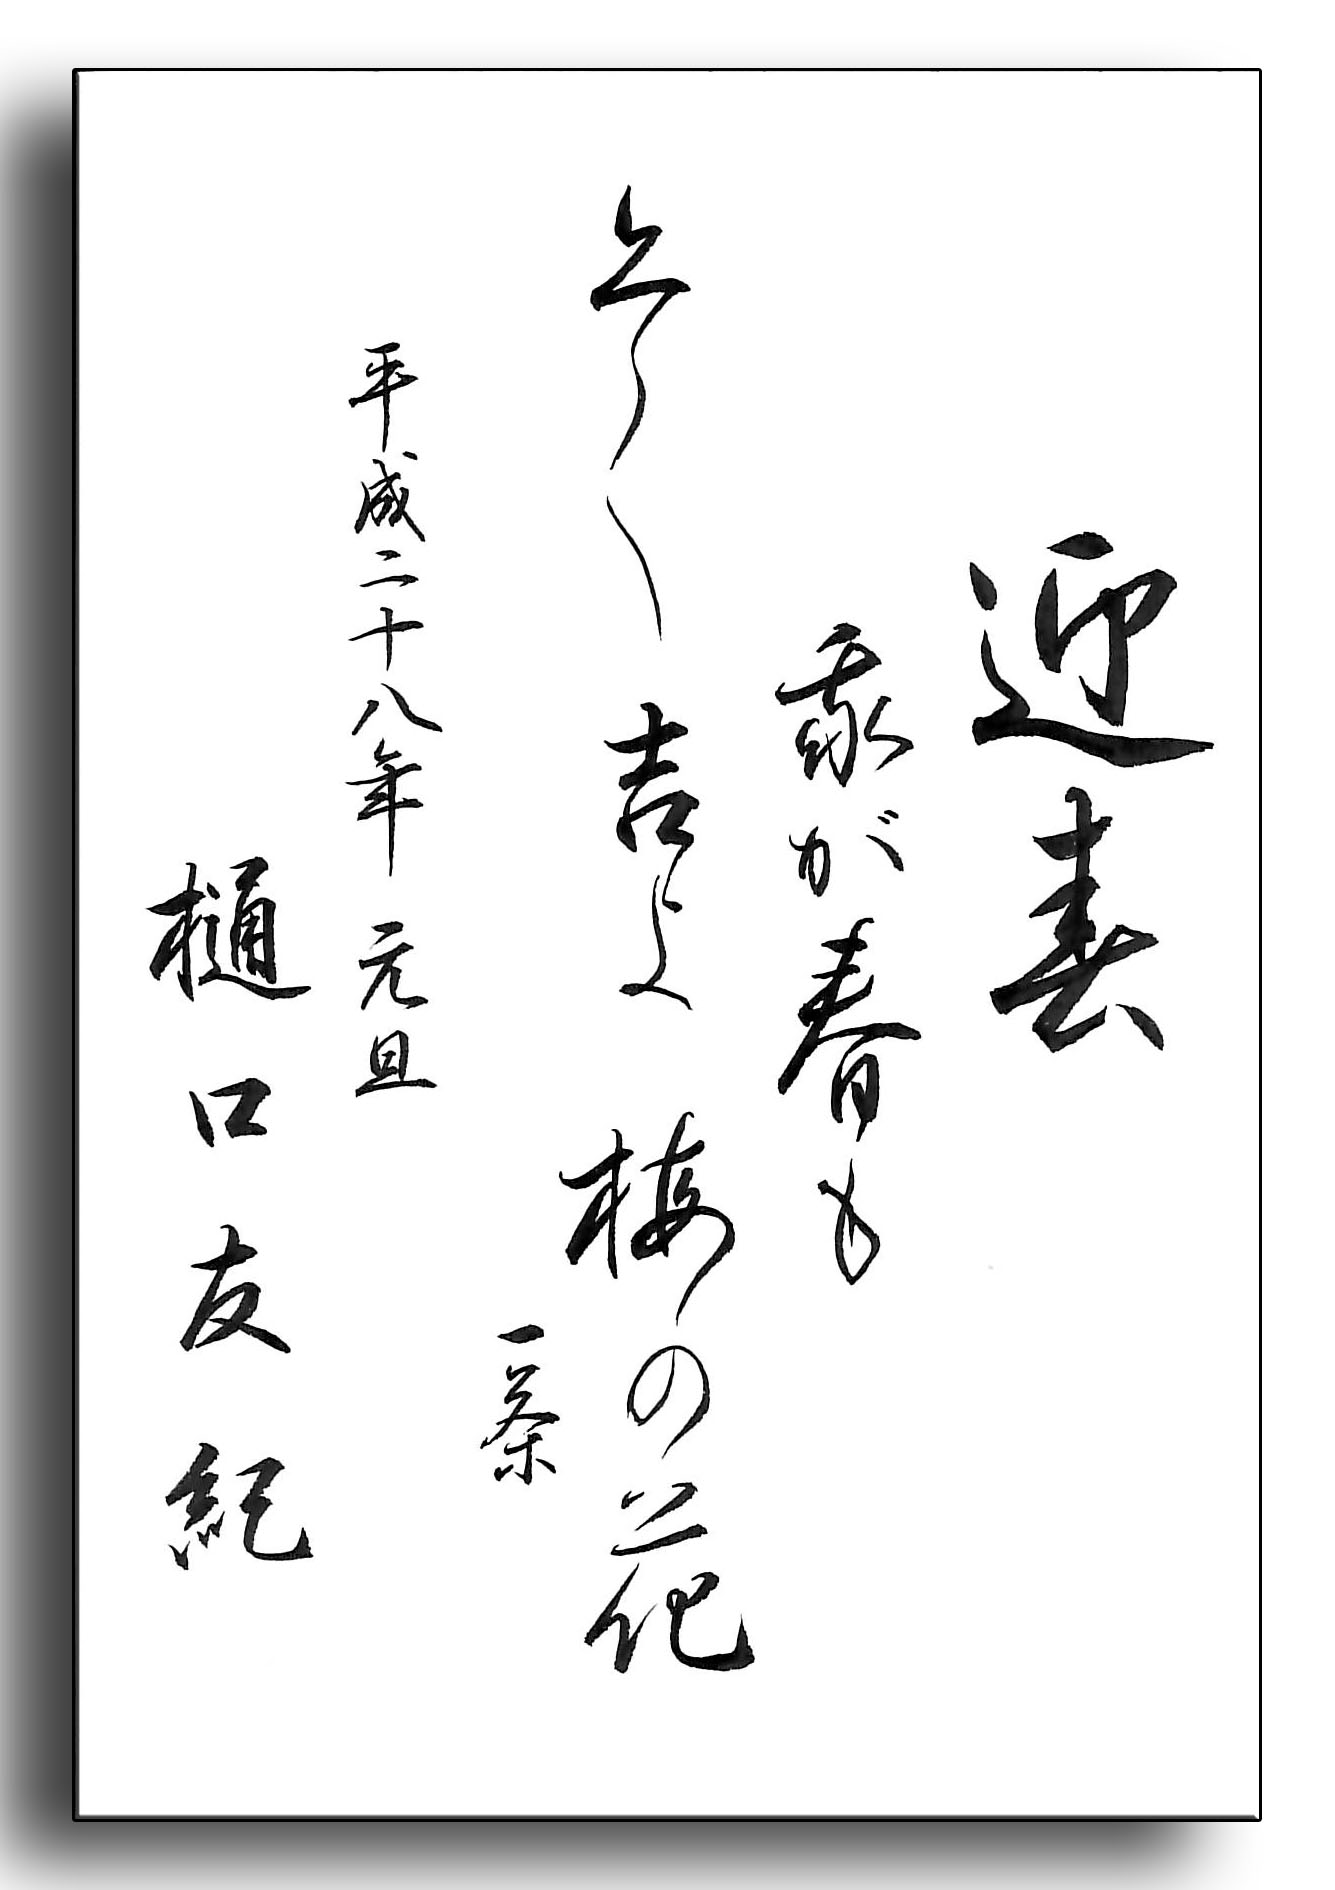 迎春
我が春も
上〳〵吉よ 梅の花
一茶
平成二十八年 元旦
樋口友紀